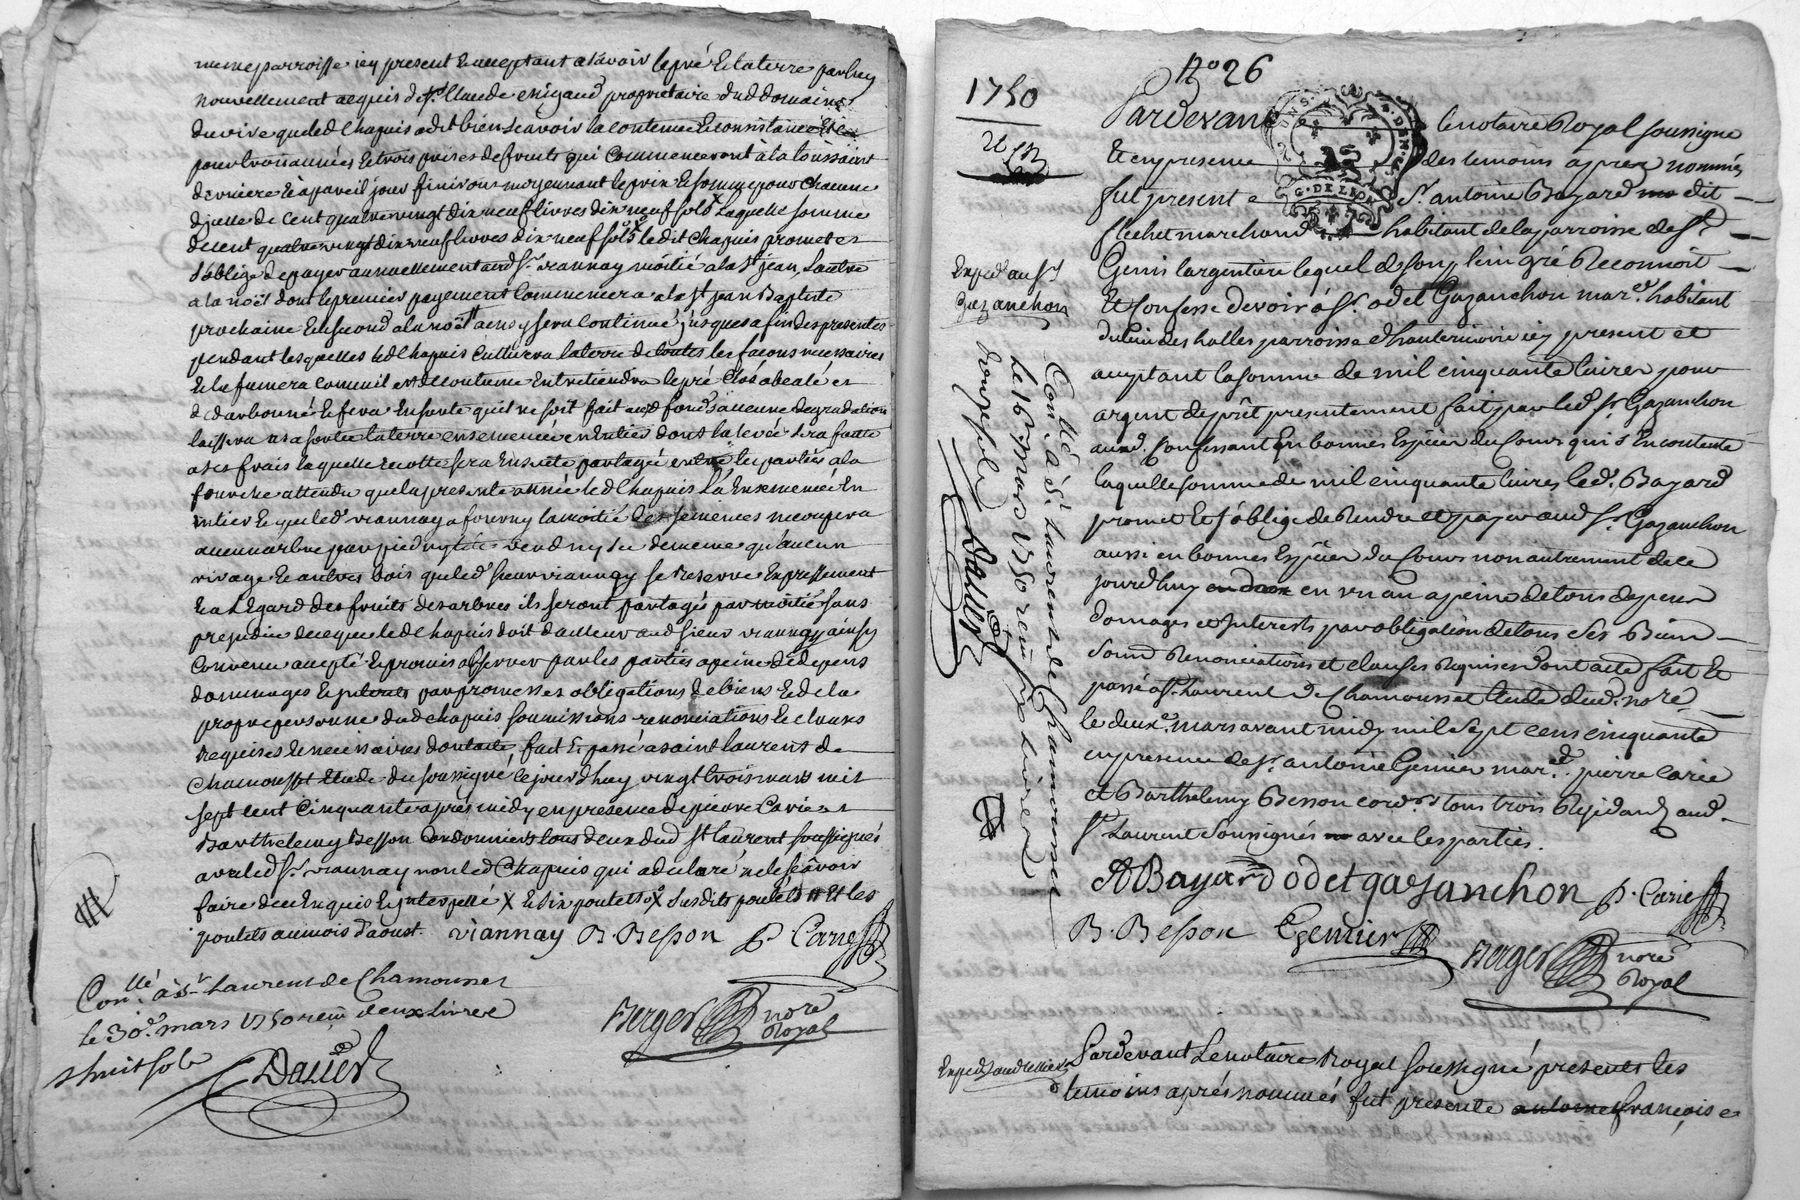 meme parroisse icy present et acceptant a savoir le pré et la terre par luy
nouvellement acquis de Sr. Claude proprietaire dud domaine
du vire que led Chapuis a dit bien scavoir la contenue et consistance et ce
pour trois années et trois prises de fruits qui commenceront à la toussaint
derniere et à pareil jour finiront moyennant le prix et somme pour chacune
d'icelle de cent quatre vingt dix neuf livres dix neuf sols X laquelle somme
de cent quatre vingt dix neuf livres dix neuf sols X le dit Chapuis promet et
s'oblige de payer annuellement aud Sr. viannay moitié a la St jean Lautre
a la noël dont le premier payement commencera a la St jean Baptiste
prochaine et le second a la noël et ainsy sera continué jusques a fin des presentes
pendant lesquelles led Chapuis cultivera la terre de toutes les façons necessaires
et la fumera comme il est de coutume entretiendra le pré clos et
et fera en sorte qu'il ne soit fait aud fonds aucune degradation
laissera a sa sortie la terre ensemencée en entier dont la levée sera faitte
a ses frais laquelle recolte sera ensuite partagée entre les parties a la
fourche attendu que la presente année led Chapuis l'a ensemencée en
entier et que led viannay a fourny la moitié des semences ne coupera
aucun arbre par pied ny tete verd ny sec de meme qu'aucun
rivage et autres bois que led sieur viannay se reserve Expressement
et a l'Egard des fruits des arbres ils seront partagés par moitié sans
prejudice de ce que led Chapuis doit d'ailleurs aud sieur viannay ainsy
Convenu accepté et promis observer par les parties a peine de depens
dommages et interets par promesses obligations de biens et de la
propre personne dud chapuis soumissions renonciations et clauses
requises et necessaires dont acte fait et passé a saint laurent de
Chamousset Etude du soussigné le jourd'huy vingt trois mars mil
sept cent cinquante après midy en presence de pierre Carie et
Barthelemy Besson Cordonniers tous deux dud St laurent soussignés
avec led Sr. viannay non led Chapuis qui a declaré ne le scavoir
faire de ce Enquis et interpellé X et six poulets X susdits poulets # Et les
poulets au mois d'aoust. viannay B. Besson P Carie
Conllé à St Laurent de Chamousset
le 30e. mars 1750 reçu deux livre
s huit sols
Dauier
Berger nore
Royal
No 26
1750
2 m
Pardevant le notaire Royal soussigné
Et en presence des temoins apres nommés
fut present Sr. antoine Bayard dit
flechet marchand habitant de la parroisse de St
G. DE LEON
Genis largentiere lequel de son plein gré Reconnoit
Et confesse devoir à Sr. odet Gazanchon mard. habitant
du lieu des halles parroisse d'hauterivoire icy present et
acceptant la somme de mil cinquante livres pour
argent de prêt presentement fait par led Sr Gazanchon
aud. Confessant En bonnes Espèces du Cours qui s'En contente
laquelle somme de mil cinquante livres led. Bayard
promet Et s'oblige de Rendre et payer aud Sr. Gazanchon
aussi en bonnes Espèces du Cours non autrement de ce
jourd'huy en un an a peine de tous depens
domages et Interests par obligation de tous ses Biens
Soum Renonciations et clauses Requises dont acte fait Et
passé a St. Laurent de Chamousset Etude dud. nore
le deuxe. mars avant midy mil sept cens cinquante
en presence de Sr. antoine Genier mard. pierre Carie
et Barthelemy Besson cordrs tous trois Residants aud.
St. Laurent Soussignés avec les parties.
ABayard odet gazanchon P. Carie
B. Besson Genier Berger nore
Royal
Exped au Sr
Gazanchon
Conllé à St Laurent de Chamousset
le 16 mars 1750 reçu six livres
douze sols
Dauier
Pardevant Le notaire Royal soussigné presents les
temoins après nommés fut presente antoine françoise